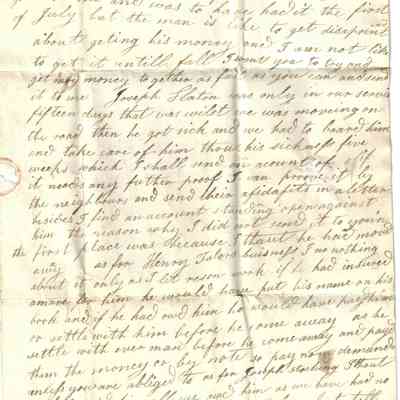 and was to have had it the first
of July but the man is like to get disapint
about geting his money and I am not like
to get it intill fall I want you to try and
get my money together as fast as you can and send
it to me Joseph Slaton was only in our service
fifteen days that was wilst we was moveing on
the road then he got sick and we had to board him
and take care of him thoue his sickness five
weeks which I shall send an acount of if
it needs any futher proof I can proove it by
the neighbours and send their afidafits in a letter
besides I find an account standing open against
him the reason why I did not send it to you in
the first place was because I thaut he had movd
away as for Henry Talors buisness I no nothing
about it only as I let reson work if he had insured
amare for him he would have put his name on his
book and if he had owd him he would have payd him
or settle with him before he come away as he
settle with ever man before he come away and payd
them the money or by note so pay no demands
unless you are obliged to as for Joseph
him as we have had no